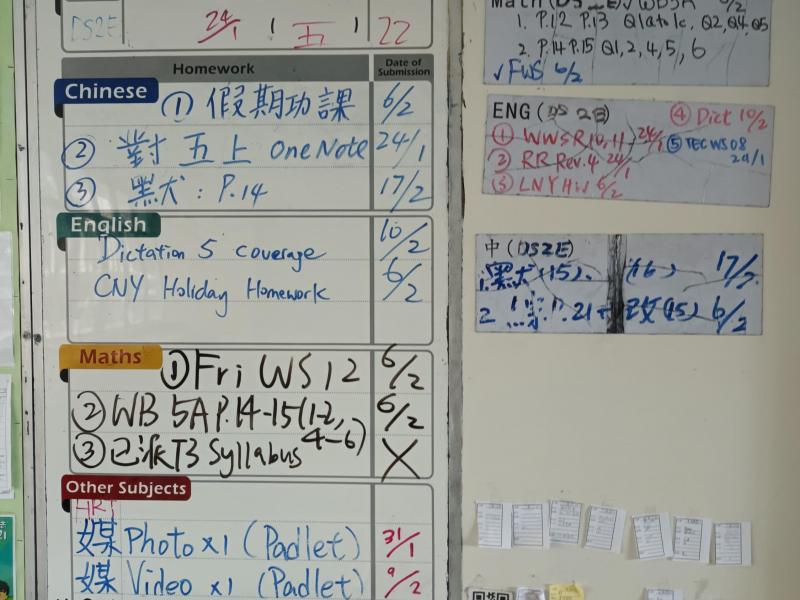 DS2E 24/1 ( 五 ) 22
Homework Date of Submission
Chinese ① 假期功課 6/2
② 對五上 OneNote 24/1
③ 黑犬: P.14 17/2
English
Dictation 5 coverage 10/2
CNY Holiday Homework 6/2
Maths ① Fri WS 12 6/2
② WB 5A P.14-15(1-2, 4-6) 6/2
③ 已派T3 Syllabus X
Other Subjects
媒 Photo x1 (Padlet) 31/1
媒 Video x1 (Padlet) 9/2
1. P.12 P.13 Q1a to 1c, Q2, Q4, Q5
2. P.14 P.15 Q1, 2, 4, 5, 6
√ FWS 6/2
ENG (DS 2E) ④ Dict 10/2
① WWSR 10, 11 24/1 ⑤ TEC WS 08
② RR Rev. 4 24/1
③ LNY HW 6/2
中 (DS2E)
1. 黑犬 (15)、 (16) 17/2
2. P.21 (15) 6/2